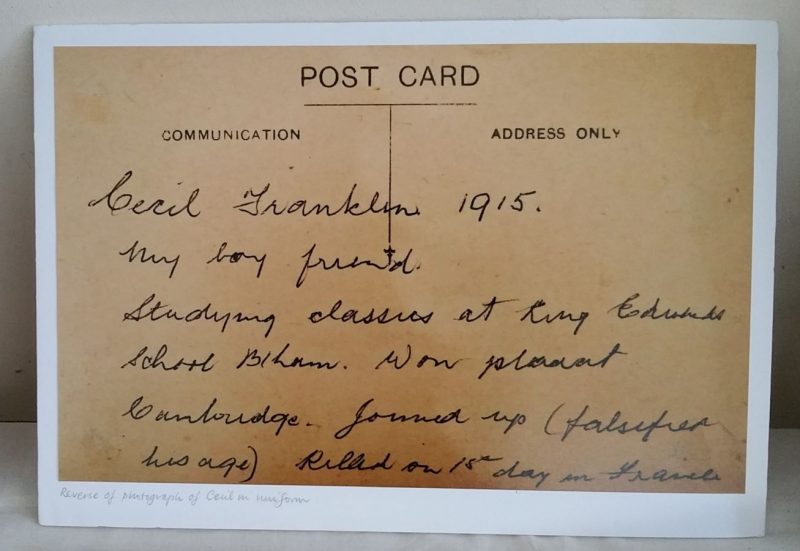 POST CARD
COMMUNICATION
ADDRESS ONLY
Cecil Franklin 1915.
My boy friend.
Studying classics at King Edwards
School B'ham. Won place at
Cambridge. Joined up (falsified
his age) Killed on 1st day in France
Reverse of photograph of Cecil in uniform